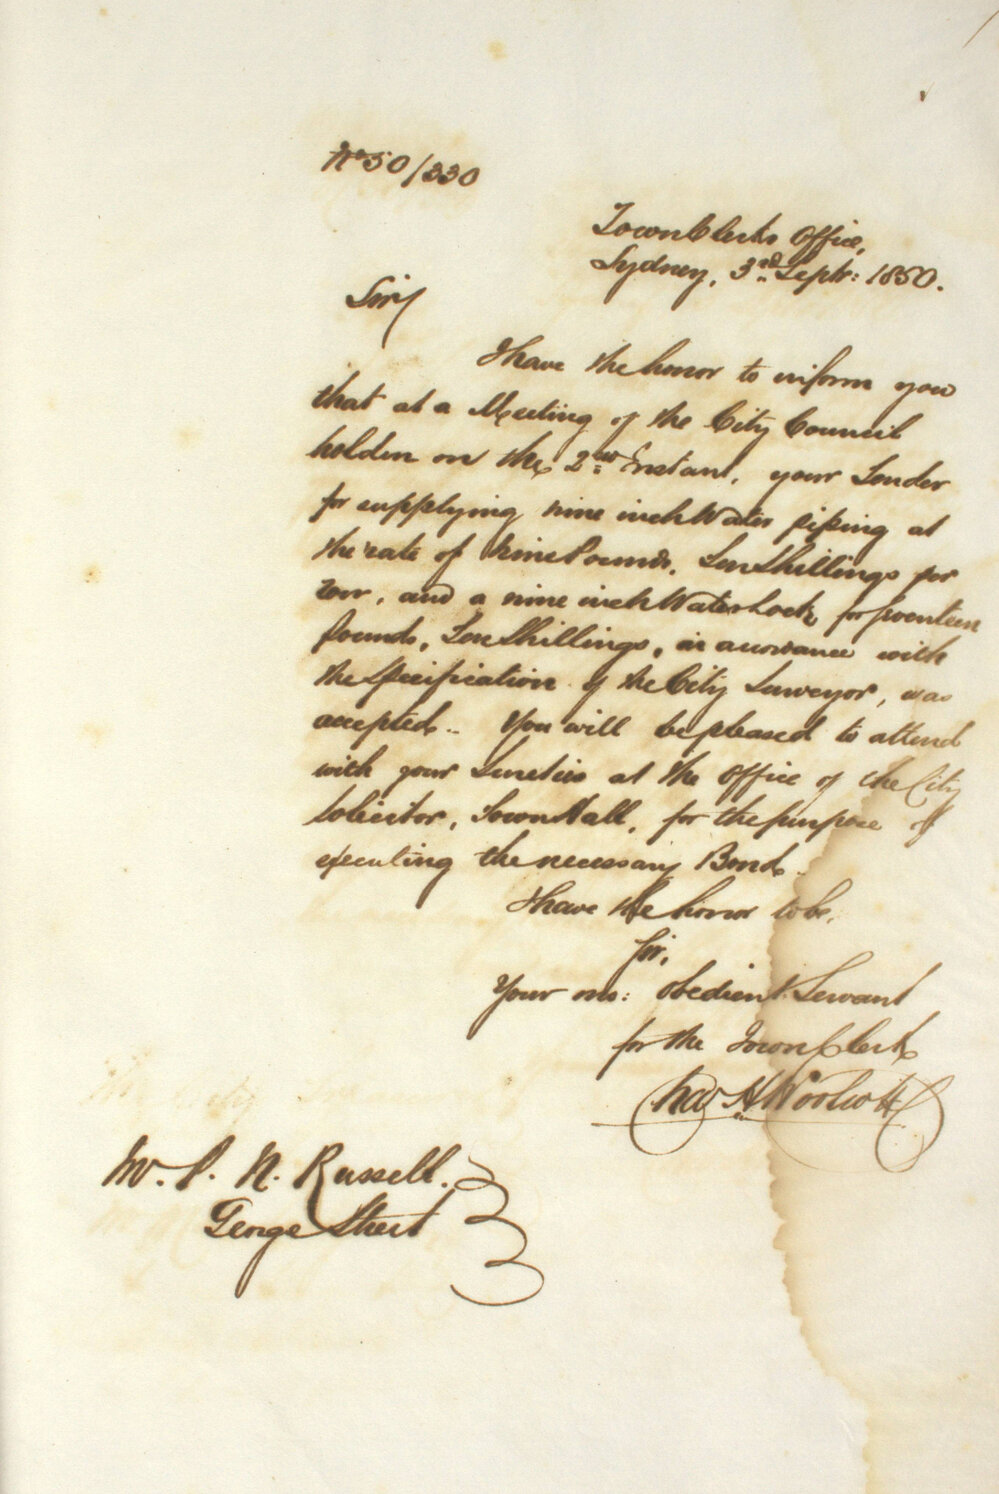 No 50/330
Town Clerks Office,
Sydney, 3rd Septr: 1850.
Sir/
I have the honor to inform you
that at a Meeting of the City Council
holden on the 2nd Instant, your Tender
for supplying nine inch Water piping at
the rate of Nine Pounds, Ten Shillings per
Ton, and a nine inch Water Cock, for seventeen
Pounds, Ten Shillings, in accordance with
the specification of the City Surveyor, was
accepted.. You will be pleased to attend
with your Sureties at the Office of the City
Solicitor, Town Hall, for the purpose of
executing the necessary Bond.
I have the honor to be,
Sir,
Your mo: Obedient Servant
for the Town Clerk
Chas H Woolcott
Mr. P. N. Russell.
George Street